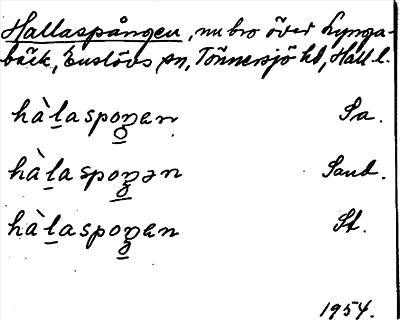 Hallaspången, nu bro över Lynga-
bäck, Enslövs sn, Tönnersjö hd, Hall. l.
hàlasponen Sa.
hàlasponən Sand.
hàlasponen St.
1954.